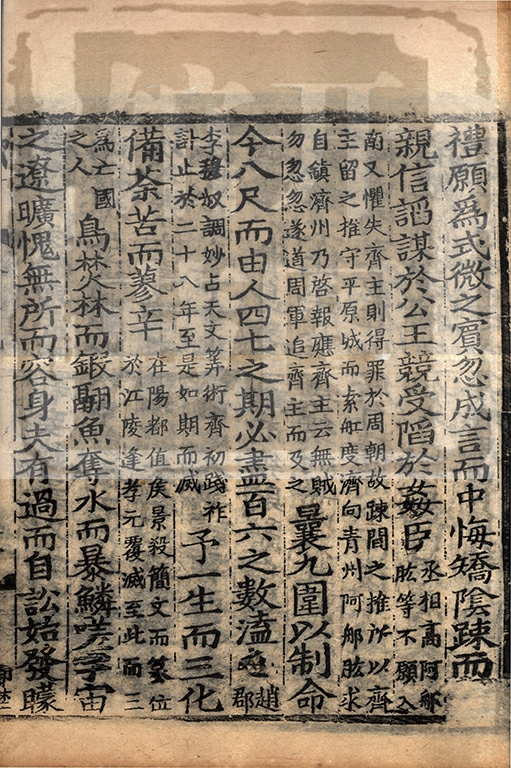 禮願爲式微之賔忽成言而中悔矯陰踈而
親信謟謀於公王競受陷於姦臣丞相高阿那肱等不願入
南又懼失齊主則得罪於周朝故踈間之推所以齊
主留之推守平原城而索舡度濟向青州阿那肱求
自鎮濟州乃啓報應齊主云無賊勿忽忽遂道周軍追齊主而及之曩九圍以制命
今八尺而由人四七之期必盡百六之數溘屯趙郡
李穆奴調妙占天文筭術齊初踐祚計止於二十八年至是如期而滅予一生而三化
備荼苦而蓼辛在陽都值侯景殺簡文而篡位於江陵逢孝元覆滅至此而三
爲亡國之人鳥焚林而鎩翮魚奪水而暴鱗嗟宇宙
之遼曠愧無所而容身夫有過而自訟始發矇